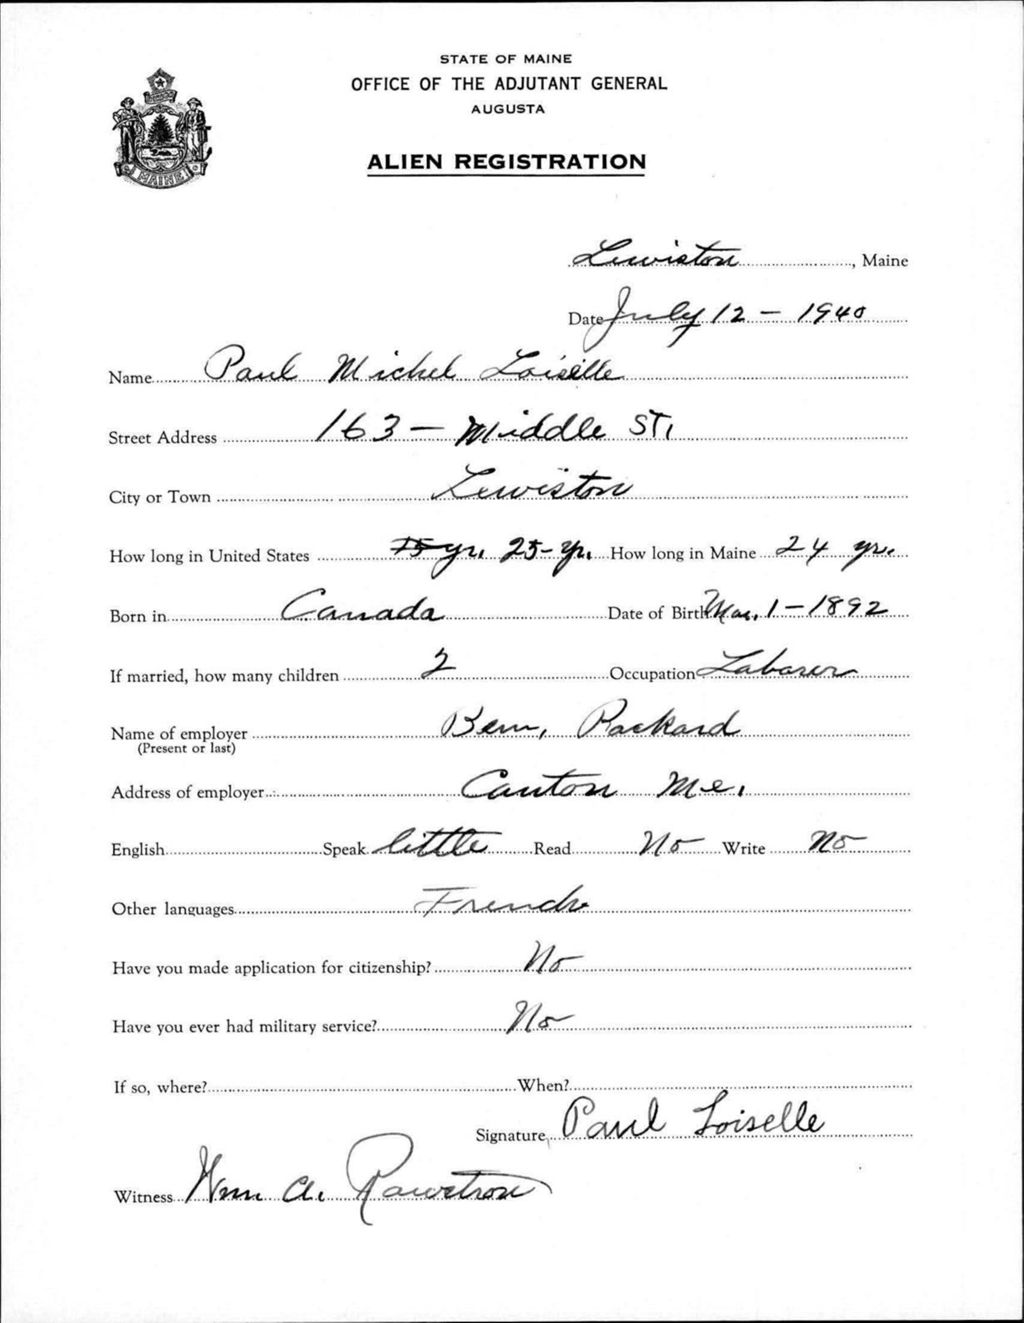 STATE OF MAINE
OFFICE OF THE ADJUTANT GENERAL
AUGUSTA
ALIEN REGISTRATION
MAINE
Lewiston, Maine
Date July 12 - 1940
Name Paul Michel Loiselle
Street Address 163 - Middle ST.
City or Town Lewiston
How long in United States yr. 25-Yr. How long in Maine 24 yr.
Born in Canada Date of Birth Mar. 1 - 1892
If married, how many children 2 Occupation Laborer
Name of employer Benn. Packard
(Present or last)
Address of employer Canton Me.
English Speak little Read No Write No
Other languages French
Have you made application for citizenship? No
Have you ever had military service? No
If so, where? When?
Signature Paul Loiselle
Witness Wm A. Rawstron